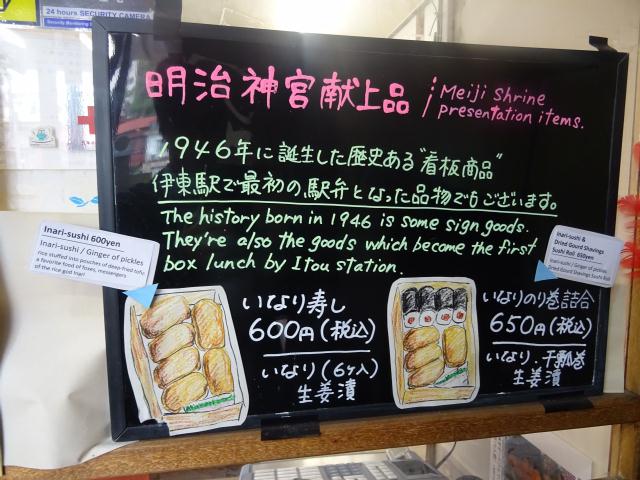 24 hours SECURITY CAMERA
明治神宮献上品
; Meiji Shrine
presentation items.
1946年に誕生した歴史ある"看板商品"
伊東駅で最初の駅弁となった品物でもございます。
The history born in 1946 is some sign goods.
They're also the goods which become the first
box lunch by Itou station.
Inari-sushi 600yen
Inari-sushi / Ginger of pickles
rice stuffed into pouches of deep-fried tofu,
a favorite food of foxes, messengers
of the rice god Inari
いなり寿し
600円(税込)
いなり(6ヶ入)
生姜漬
Inari-sushi &
Dried Gourd Shavings
Sushi Roll 650yen
Inari-sushi / Ginger of pickles
Dried Gourd Shavings Sushi Roll
いなりのり巻詰合
650円(税込)
いなり・干瓢巻
生姜漬